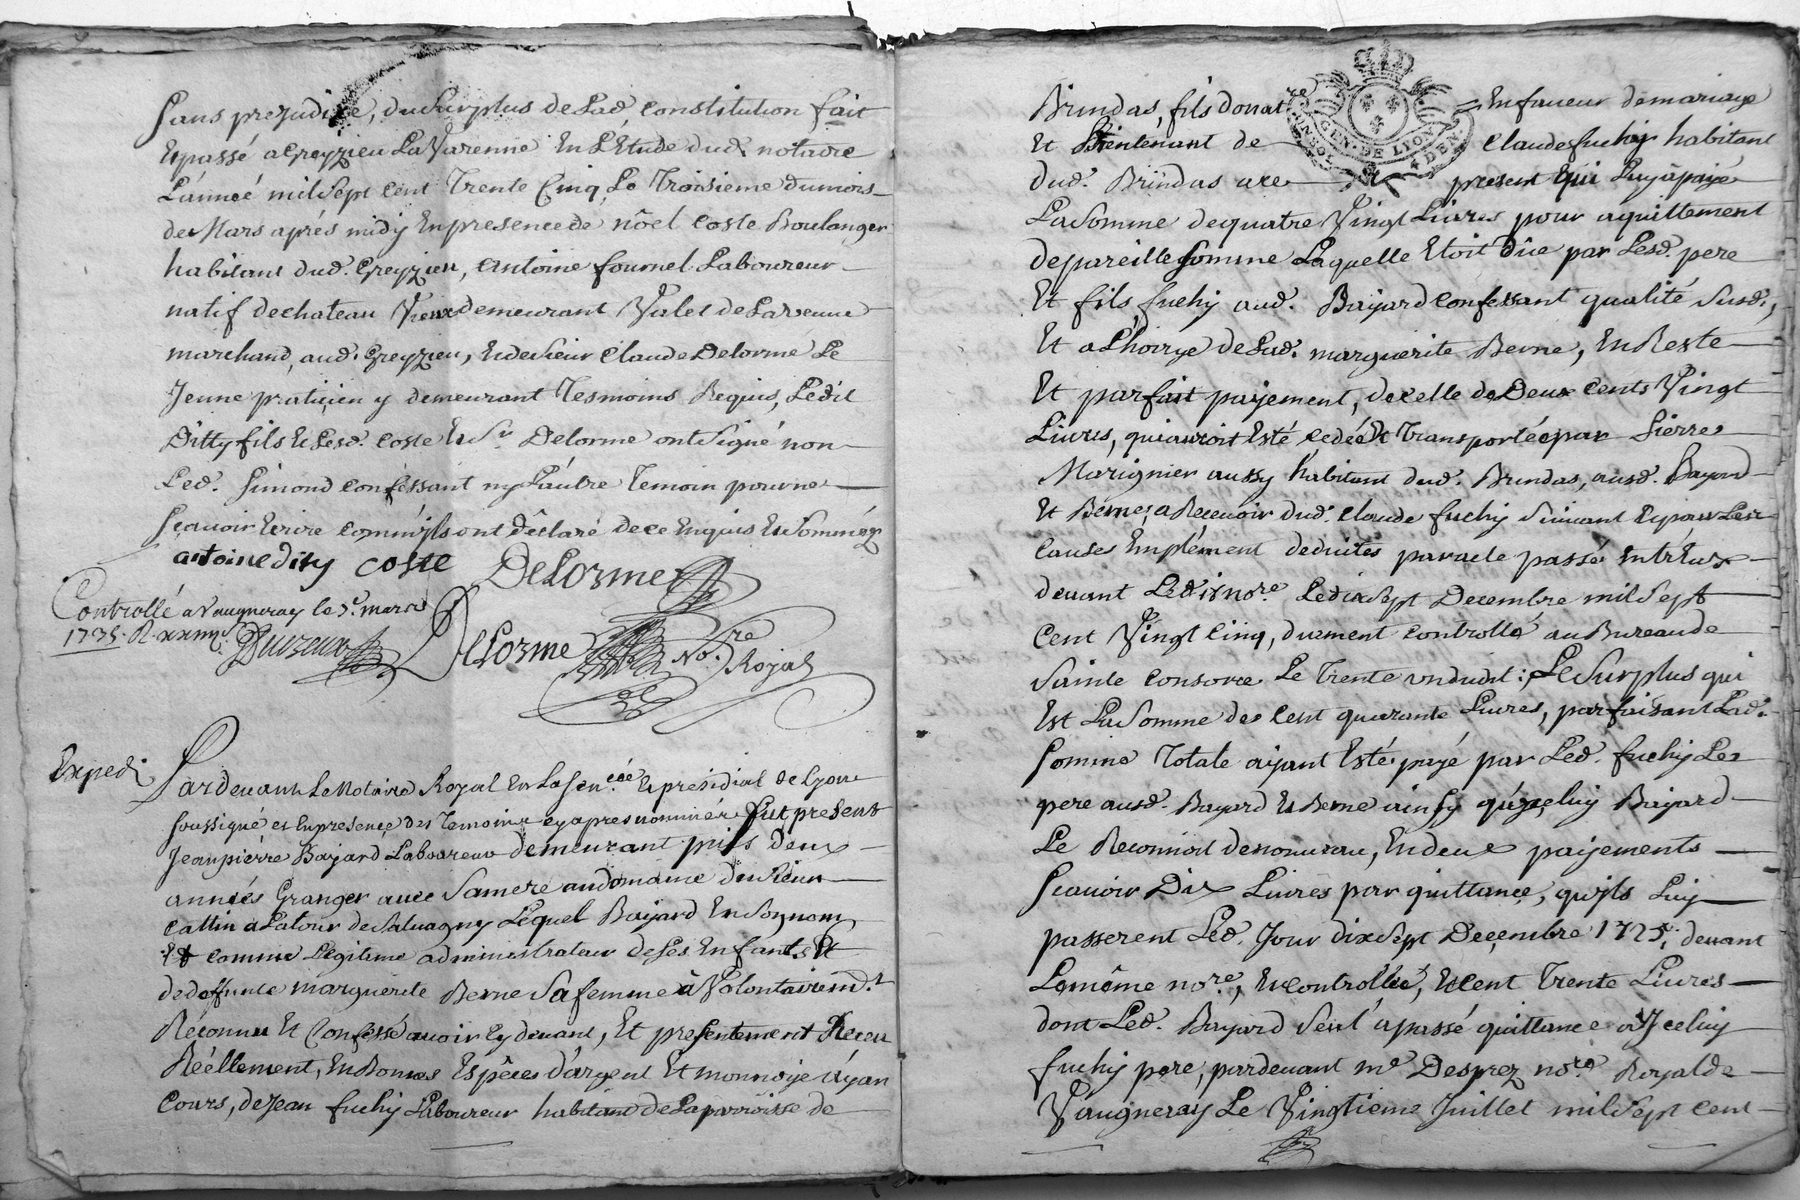 Sans prejudice, du Surplus de Lad. Constitution fait
Et passé a Greyzieu La Varenne En L'Etude dud. notaire
L'année mil Sept Cent Trente Cinq, Le Troisieme du mois
de Mars aprés midy En presence de nôel Coste Boulanger
habitant dud. Greyzieu, Antoine fournel Laboureur
natif de chateau Vieux demeurant Valet de La veuve
marchand, aud. Greyzieu, Et de Sieur Claude Delorme Le
Jeune praticien y demeurant Tesmoins Requis, Ledit
Ditty fils Et Led. Coste Et Sr. Delorme ont Signé non
Led. Simond Confessant ny L'autre Temoin pour ne
Sçavoir Ecrire Comm'ils ont dêclaré de ce Enquis Et Sommés
antoine dity coste DeLorme
Controllé a Vaugneray le 5e. mars
1735. R.
DeLorme No.re Royal
Expedi
Pardevant Le Notaire Royal En La Sen.cée Et presidial de Lyon
Soussigné et En presence des Temoins cy apres nommés fut present
Jean pierre Bayard Laboureur demeurant puis Deux
années Granger avec Sa mere au domaine du Sieur
Cattin a La tour de Salvagny Lequel Bayard En Son nom
Et comme Legitime administrateur de Ses Enfants Et
de deffunte marguerite Berne Sa femme à Volontairem.t
Reconnu Et Confessé avoir Cy devant, Et presentement Receu
Réellement, En Bonnes Espêces d'argent Et monnoye ayan
Cours, de Jean fuchy Laboureur habitant de La parroisse de
Brindas, fils donat.re En faveur de mariage
Et Lientenant de Claude fuchy habitant
dud. Brindas a ce present qui Luy à payé
La Somme de quatre Vingt Livres pour aquittement
de pareille Somme Laquelle Etoit dûe par Lesd. pere
Et fils fuchy aud. Bayard Confessant qualité Susd.,
Et a L'hoirye de Lad. marguerite Berne, En Reste
Et parfait payement, de celle de Deux Cents Vingt
Livres, qui auroit Esté Cedée Et Transportée par Pierre
Marignier aussy habitant dud. Brindas, ausd. Bayard
Et Berne, a Recevoir dud. Claude fuchy Suivant Et pour Les
Causes Emplément deduites par acte passé Entr'eux
devant Ledit no.re Le dix Sept Decembre mil Sept
Cent Vingt Cinq, duement Controllé au Bureau de
Sainte Consorce Le Trente un dudit; Le Surplus qui
Est La Somme de Cent quarante Livres, parfaisant Lad.
Somme Totale ayant Esté payé par Led. fuchy Le
pere ausd. Bayard Et Berne ainsy qu'Iceluy Bayard
Le Reconnoit de nouveau, En deux payements
Scavoir Dix Livres par quittance, qu'ils Luy
passerent Led. Jour dix Sept Decembre 1725, devant
Le même no.re, Et Controllée, Et Cent Trente Livres
dont Led. Bayard Seul à passé quittance a Iceluy
fuchy pere, pardevant me. Desprez no.re Royal de
Vaugneray Le Vingtieme Juillet mil Sept Cent
GEN. DE LYON